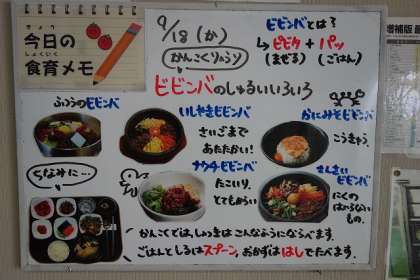 きょう
今日の
しょくいく
食育メモ
9/18 (か)
かんこくりょうり
ビビンバとは?
↳ ビビダ + パッ
(まぜる) (ごはん)
ビビンバのしゅるいいろいろ
ふつうのビビンバ
いしやきビビンバ
さいごまで
あたたかい!
かにみそビビンバ
こうきゅう。
ちなみに…
ナクチビビンバ
たこいり。
とてもからい
さんさい
ビビンバ
にくの
はいらない
もの。
かんこくでは、しょっきはこんなふうにならべます。
ごはんとしるはスプーン、おかずははしでたべます。
増補版